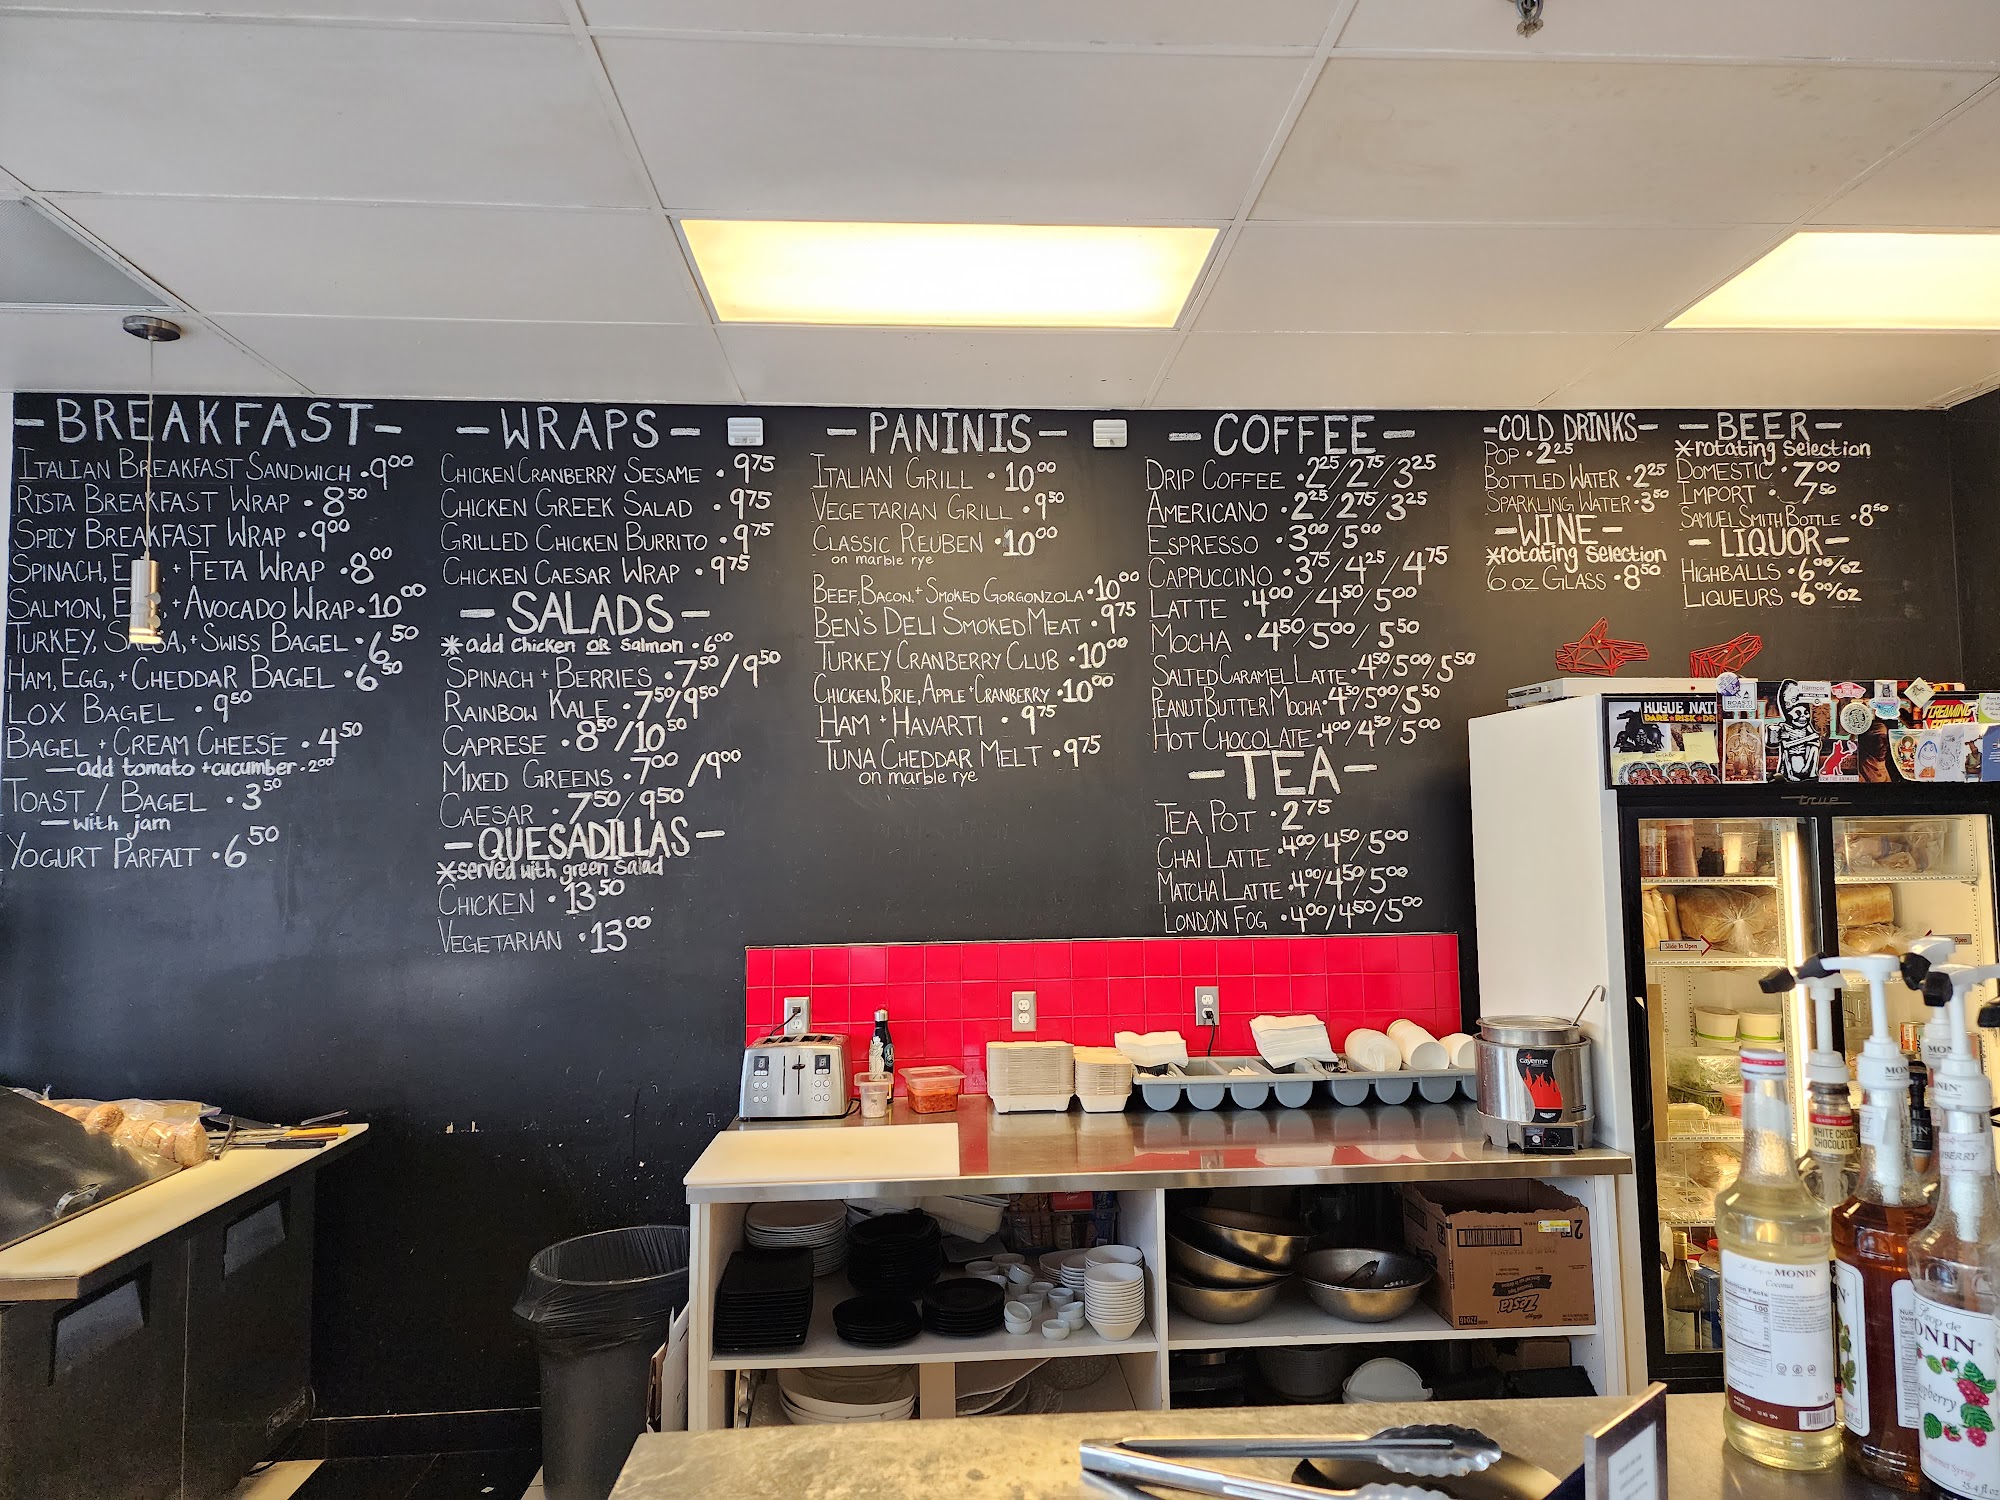 -BREAKFAST-
ITALIAN BREAKFAST SANDWICH • 9⁰⁰
RISTA BREAKFAST WRAP • 8⁵⁰
SPICY BREAKFAST WRAP • 9⁰⁰
SPINACH, E + FETA WRAP • 8⁰⁰
SALMON, E + AVOCADO WRAP • 10⁰⁰
TURKEY, SALSA, + SWISS BAGEL • 6⁵⁰
HAM, EGG, + CHEDDAR BAGEL • 6⁵⁰
LOX BAGEL • 9⁵⁰
BAGEL + CREAM CHEESE • 4⁵⁰
—add tomato + cucumber • 2⁰⁰
TOAST / BAGEL • 3⁵⁰
—with jam
YOGURT PARFAIT • 6⁵⁰
-WRAPS-
CHICKEN CRANBERRY SESAME • 9⁷⁵
CHICKEN GREEK SALAD • 9⁷⁵
GRILLED CHICKEN BURRITO • 9⁷⁵
CHICKEN CAESAR WRAP • 9⁷⁵
-SALADS-
*add chicken OR salmon • 6⁰⁰
SPINACH + BERRIES • 7⁵⁰/9⁵⁰
RAINBOW KALE • 7⁵⁰/9⁵⁰
CAPRESE • 8⁵⁰/10⁵⁰
MIXED GREENS • 7⁰⁰/9⁰⁰
CAESAR • 7⁵⁰/9⁵⁰
-QUESADILLAS-
*served with green salad
CHICKEN • 13⁵⁰
VEGETARIAN • 13⁰⁰
-PANINIS-
ITALIAN GRILL • 10⁰⁰
VEGETARIAN GRILL • 9⁵⁰
CLASSIC REUBEN • 10⁰⁰
on marble rye
BEEF, BACON, + SMOKED GORGONZOLA • 10⁰⁰
BEN'S DELI SMOKED MEAT • 9⁷⁵
TURKEY CRANBERRY CLUB • 10⁰⁰
CHICKEN, BRIE, APPLE + CRANBERRY • 10⁰⁰
HAM + HAVARTI • 9⁷⁵
TUNA CHEDDAR MELT • 9⁷⁵
on marble rye
-COFFEE-
DRIP COFFEE • 2²⁵/2⁷⁵/3²⁵
AMERICANO • 2²⁵/2⁷⁵/3²⁵
ESPRESSO • 3⁰⁰/5⁰⁰
CAPPUCCINO • 3⁷⁵/4²⁵/4⁷⁵
LATTE • 4⁰⁰/4⁵⁰/5⁰⁰
MOCHA • 4⁵⁰/5⁰⁰/5⁵⁰
SALTED CARAMEL LATTE • 4⁵⁰/5⁰⁰/5⁵⁰
PEANUT BUTTER MOCHA • 4⁵⁰/5⁰⁰/5⁵⁰
HOT CHOCOLATE • 4⁰⁰/4⁵⁰/5⁰⁰
-TEA-
TEA POT • 2⁷⁵
CHAI LATTE • 4⁰⁰/4⁵⁰/5⁰⁰
MATCHA LATTE • 4⁰⁰/4⁵⁰/5⁰⁰
LONDON FOG • 4⁰⁰/4⁵⁰/5⁰⁰
-COLD DRINKS-
POP • 2²⁵
BOTTLED WATER • 2²⁵
SPARKLING WATER • 3⁵⁰
-WINE-
*rotating selection
6 OZ GLASS • 8⁵⁰
-BEER-
*rotating selection
DOMESTIC • 7⁰⁰
IMPORT • 7⁵⁰
SAMUEL SMITH BOTTLE • 8⁵⁰
-LIQUOR-
HIGHBALLS • 6⁰⁰/OZ
LIQUEURS • 6⁰⁰/OZ
ROGUE
DARK
ROAST
true
Slide To Open
Open
cayenne
Zesta
MONIN
Coconut
Nutrition Facts
100
WHITE CHOC
CHOCOLAT
MONIN
Raspberry
25.4 fl oz